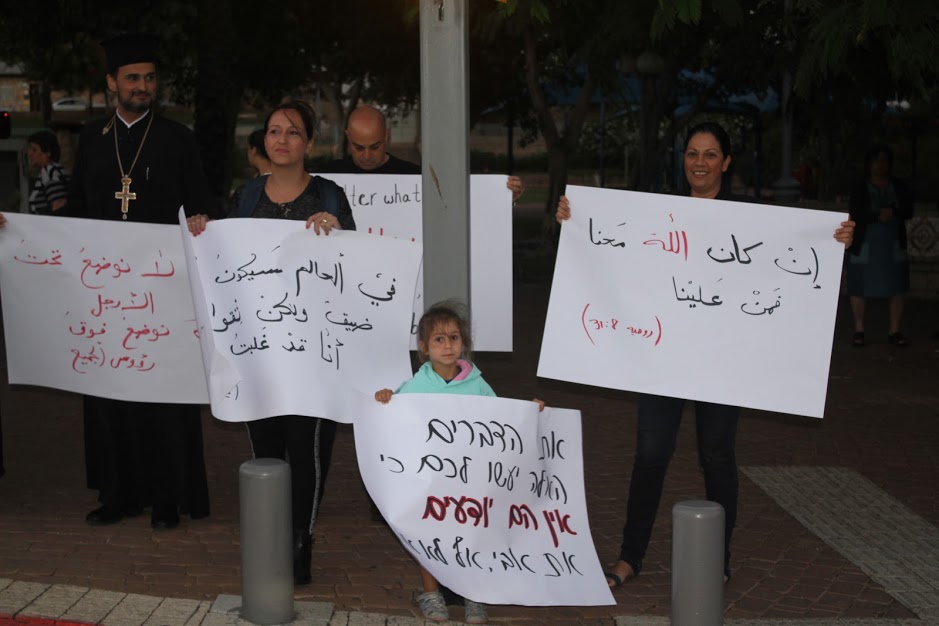 لا توضعُ تحتَ
الأرجل
توضع فوقَ
رؤوس الجميع
فيْ العالم سيكونُ
ضيقٌ ولكنْ ثقوا
أنا قد غلبتُ
tter what
إنْ كان اللّة مَعنا
فمَنْ عَليْنا
(رومية 31:8)
את הדברים
האלה יעשו לכם כי
אין הם יודעים
את אבי, אף לא